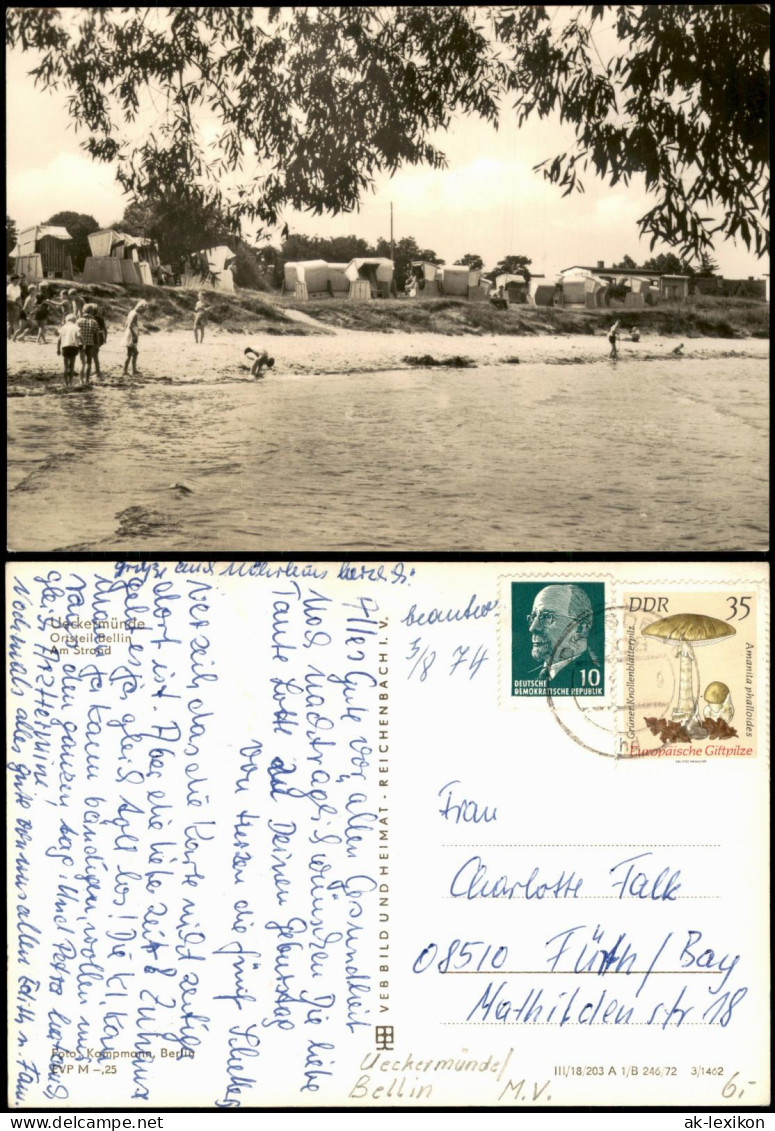 Ueckermünde
Ortsteil Bellin
Am Strand
Foto: Kampmann, Berlin
EVP M –,25
VEB BILD UND HEIMAT · REICHENBACH I. V.
Alles Gute vor allen Gesundheit
Und nachträglich wünschen Dir liebe
Tante Lotte zu Deinen Geburtstag
von Herzen die fünf
Verzeih das die Karte nicht zeitig
dort ist. Aber die liebe Zeit &
geht es ja gleich toll los! Die kl.
man ja kaum bändigen, wollen
den ganzen Tag! Und Petra
gleich
Nochmals alles gute von uns allen
beantw
3/8 74
DEUTSCHE
DEMOKRATISCHE REPUBLIK
10
DDR 35
Grüner Knollenblätterpilz
Amanita phalloides
Europäische Giftpilze
Frau
Charlotte Falk
08510 Fürth/Bay
Mathildenstr 18
Ueckermünde/
Bellin M.V.
III/18/203 A 1/B 246/72 3/1462
6,-
ak-lexikon.de